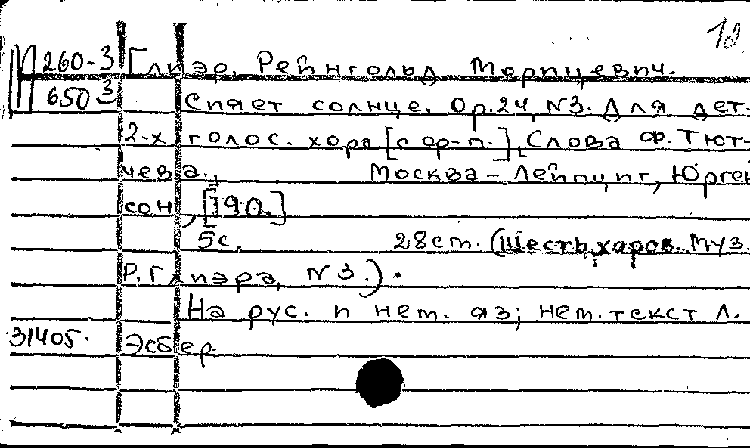 10
М 260-3 Глиэр, Рейнгольд Морицевич.
650 3 Сияет солнце. Ор.24, №3. Для дет.
2-х голос. хора [с ор-п.], Слова Ф. Тют-
чева., Москва – Лейпциг, Юрген
сон, [190.]
5с. 28ст. (Шесть хоров. Муз.
Р. Глиэра, №3.).
На рус. и нем. яз; нем. текст Л.
31405. Эсбер